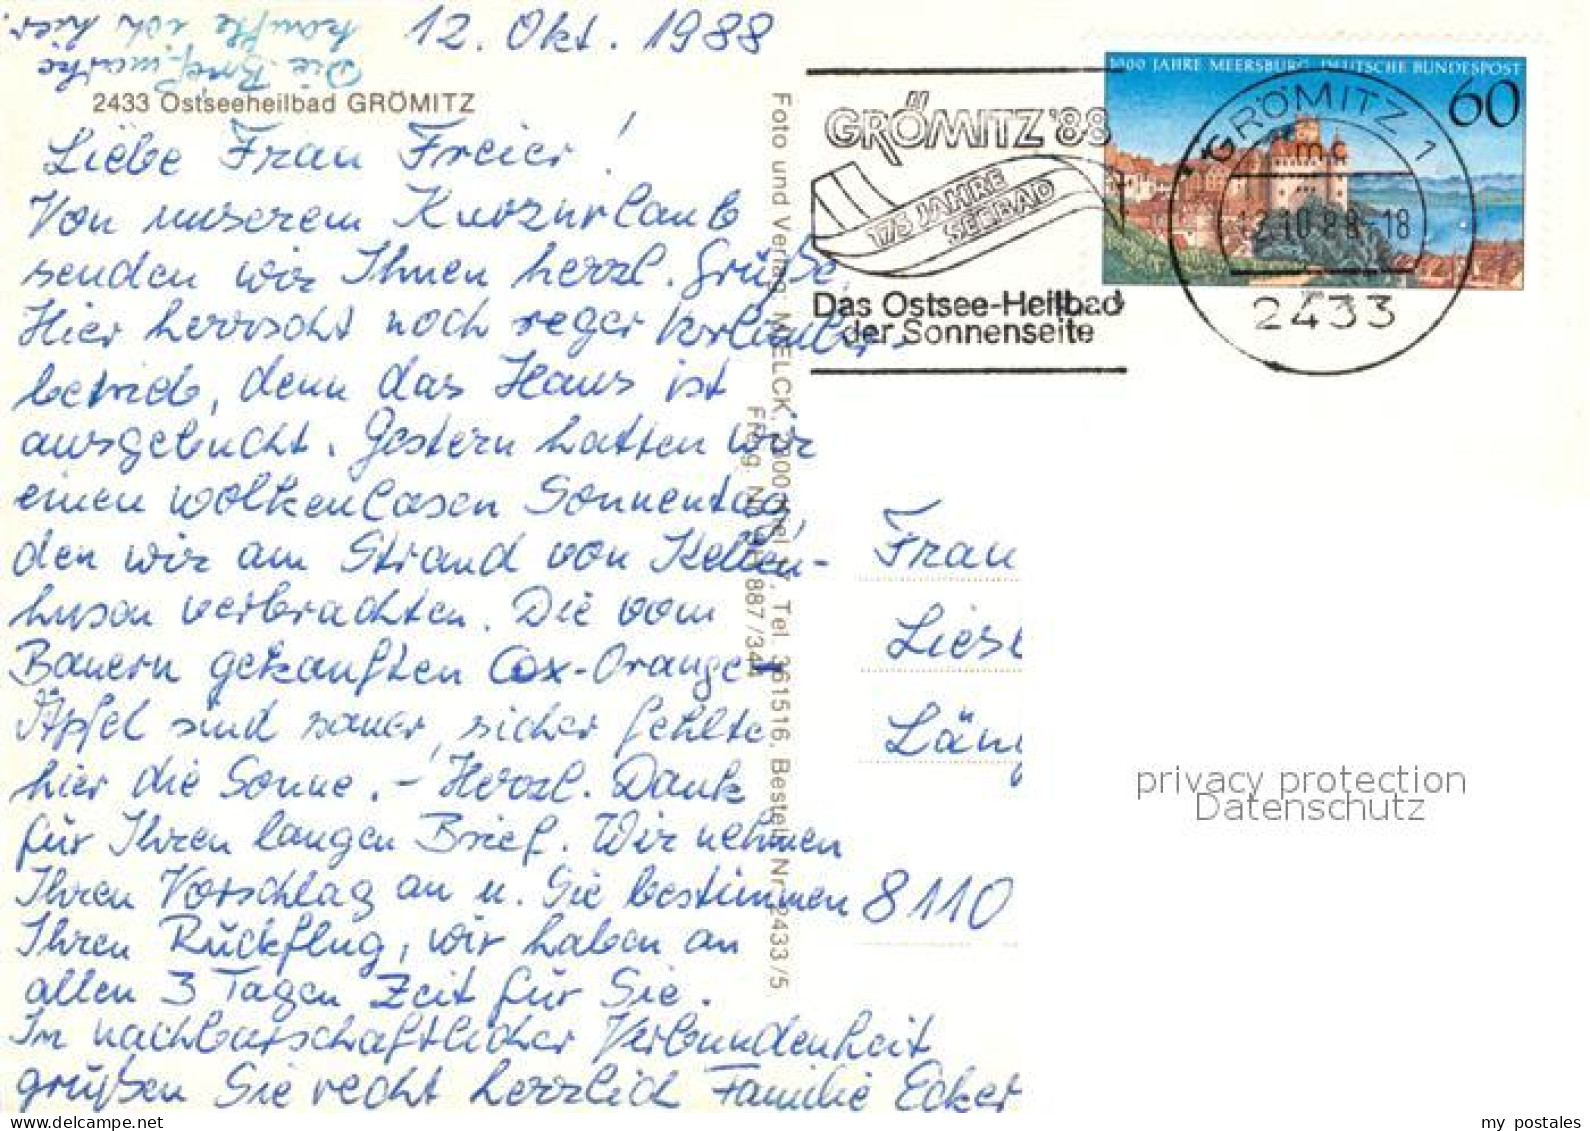 12. Okt. 1988
Die Briefmarke
kaufte ich hier.
2433 Ostseeheilbad GRÖMITZ
Liebe Frau Freier!
Von unserem Kurzurlaub
senden wir Ihnen herzl. Grüße.
Hier herrscht noch reger Verlauber-
betrieb, denn das Haus ist
ausgebucht. Gestern hatten wir
einen wolkenlosen Sonnentag,
den wir am Strand von Kellen-
huson verbrachten. Die vom
Bauern gekauften Cox-Orange-
Äpfel sind sauer, sicher fehlte
hier die Sonne. – Herzl. Dank
für Ihren langen Brief. Wir nehmen
Ihren Vorschlag an u. Sie bestimmen
Ihren Rückflug, wir haben an
allen 3 Tagen Zeit für Sie.
In nachbarschaftlicher Verbundenheit
grüßen Sie recht herzlich Familie Ecker
Foto und Verlag MELCK, Tel. 361516, Bestell-Nr. 2433/5
Freig. 887/344
GRÖMITZ '88
175 JAHRE
SEEBAD
Das Ostsee-Heilbad
der Sonnenseite
1000 JAHRE MEERSBURG DEUTSCHE BUNDESPOST
60
GRÖMITZ 1
mc
12.10.88-18
2433
Frau
Liese
Läng
8110
privacy protection
Datenschutz
my postales